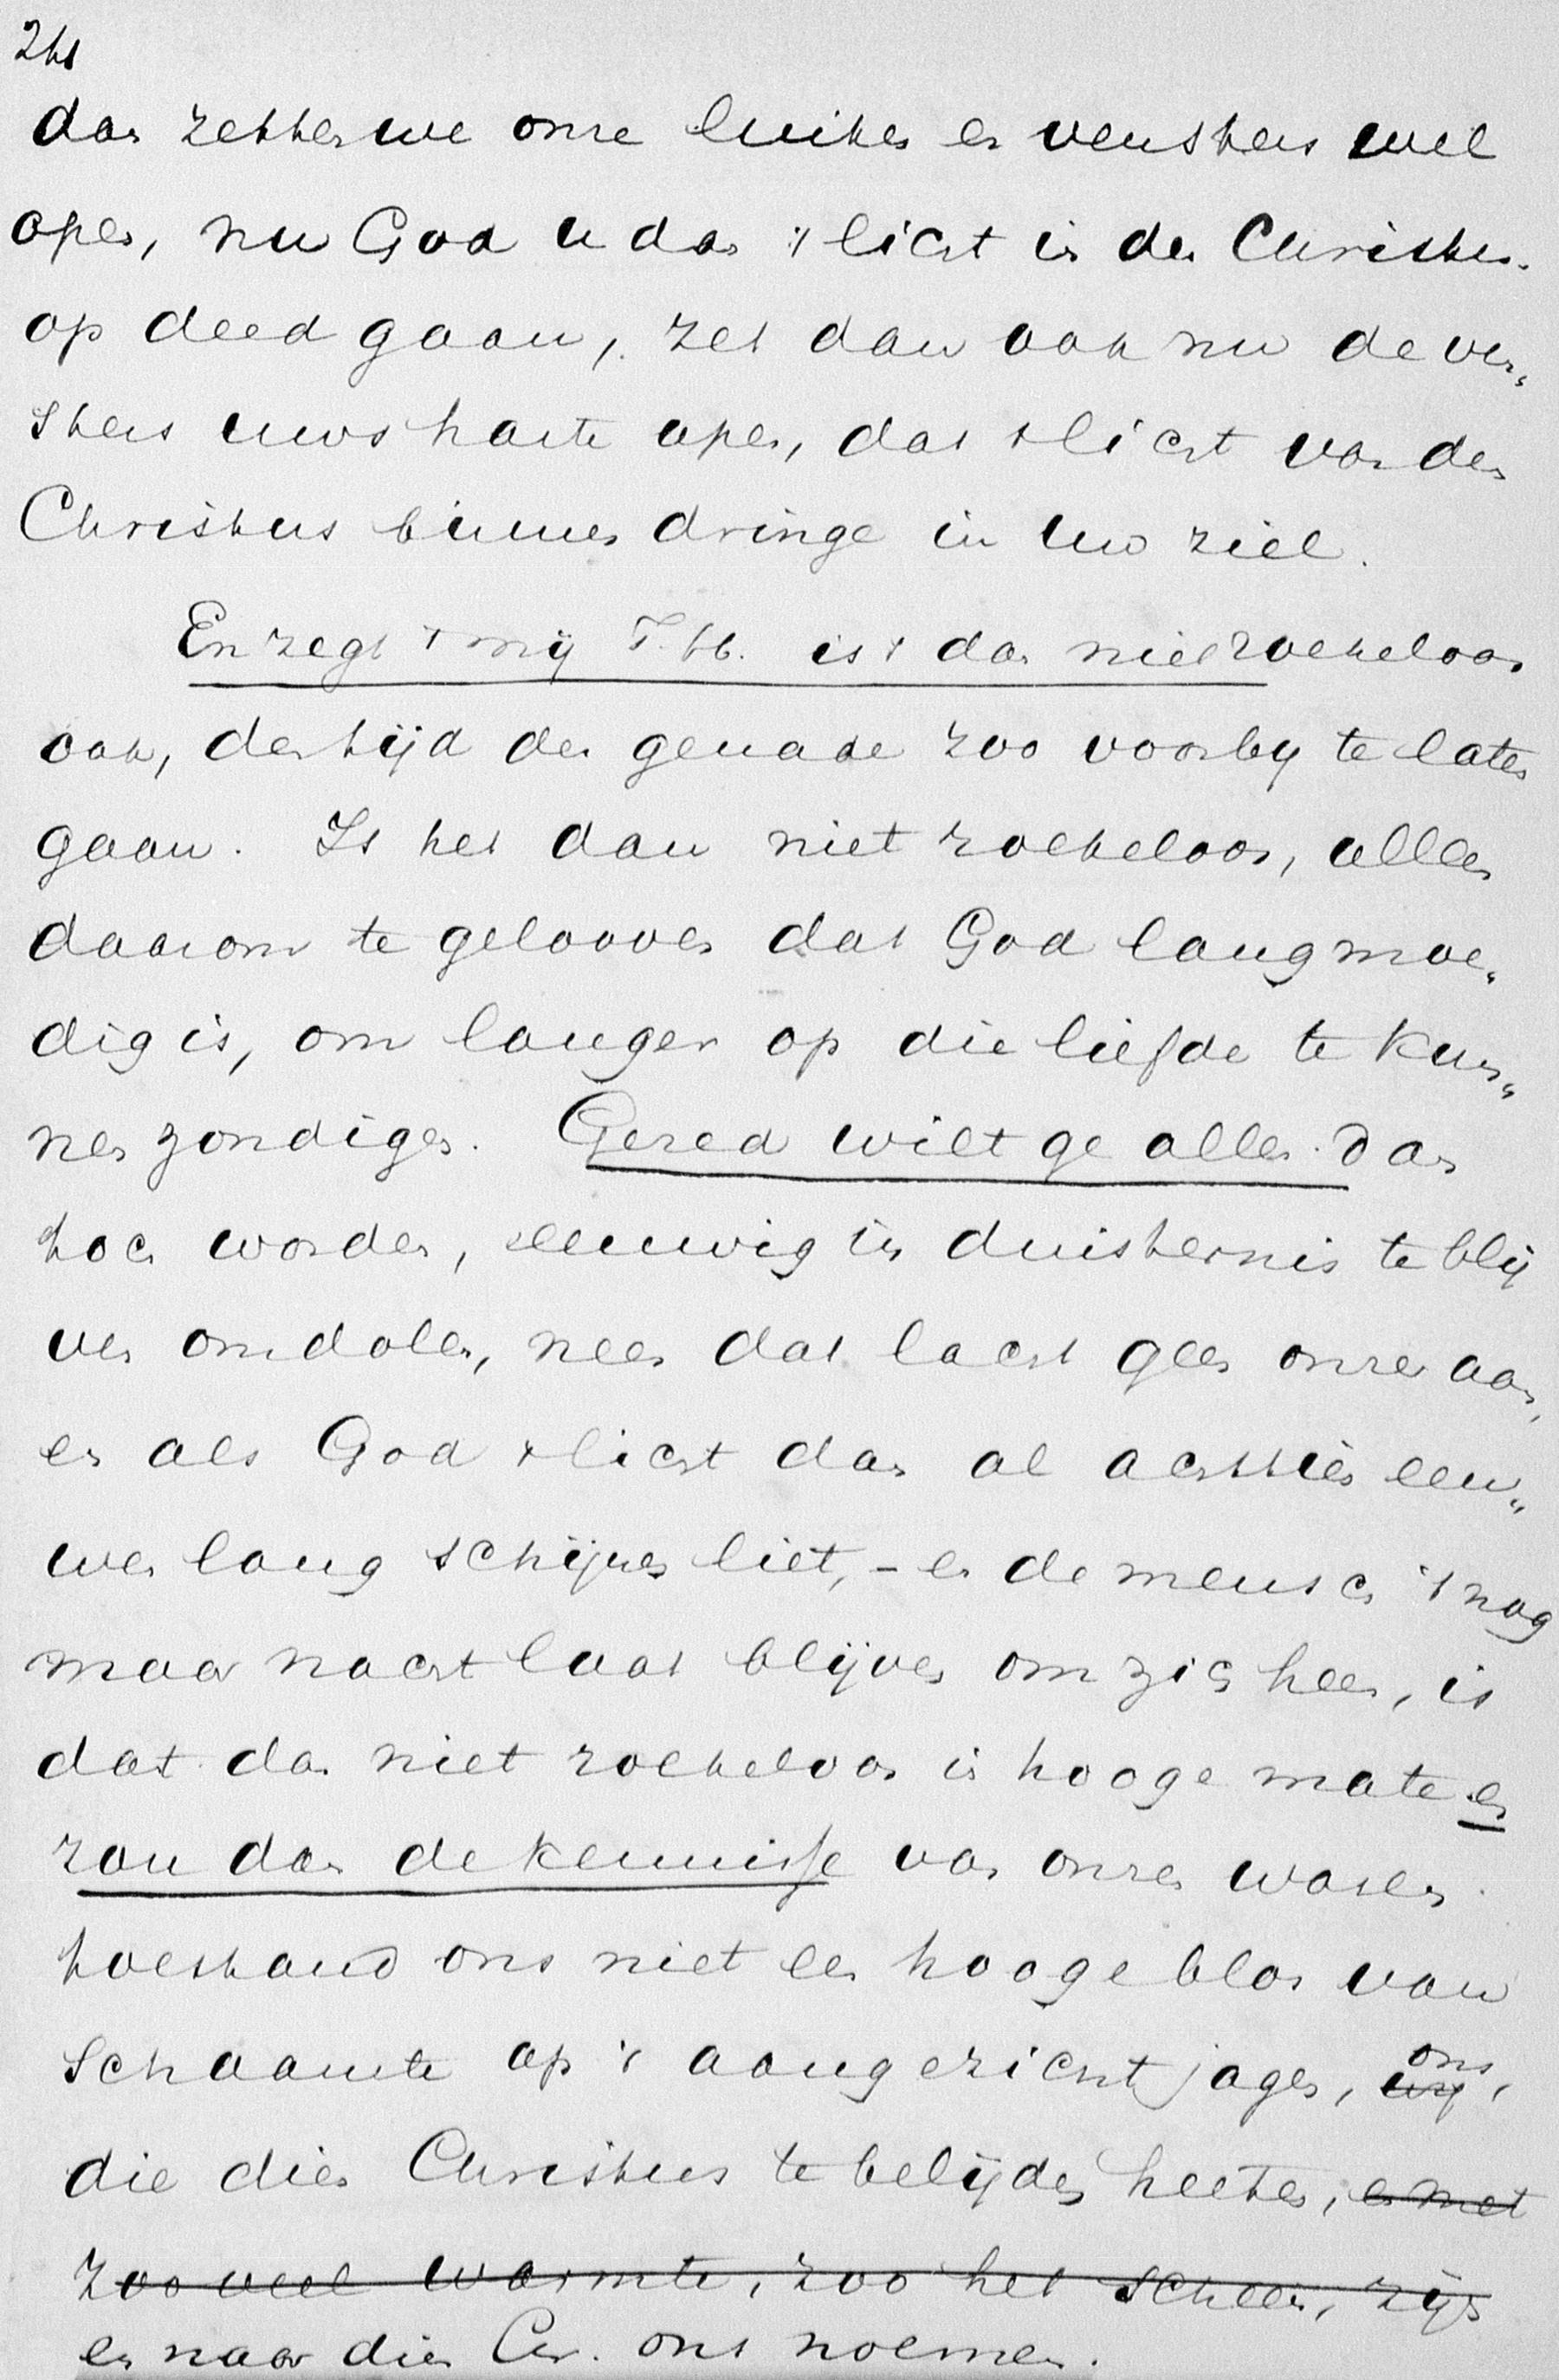 dan zetten we onze luiken en vensters wel
open, nu God u dan 't licht in den Christus
op deed gaan, zet dan ook nu de ven„
sters uws harte open, dat 't licht van den
Christus binnen dringe in uw ziel.
En zegt 't mij T. H. is 't dan niet roekeloos
ook, den tijd der genade zoo voorby te laten
gaan. Is het dan niet roekeloos, alleen
daarom te gelooven dat God langmoe„
dig is, om langer op die liefde te kun„
nen zondigen. Gered wilt ge allen dan
toch worden, eeuwig in duisternis te blij
ven omdolen, neen dat lacht geen onzer aan,
en als God 't licht dan al achttien eeu„
wen lang schijnen liet, - en de mensch 't nog
maar nacht laat blijven om zich heen, is
dat dan niet roekeloos in hooge mate en
zou dan de kennisse van onzen waren
toestand ons niet een hooge blos van
schaamte op 't aangezicht jagen, wij ons,
die dien Christus te belijden heeten, en met
zooveel warmte, zoo het scheen, zijn
en naar dien Chr. ons noemen.